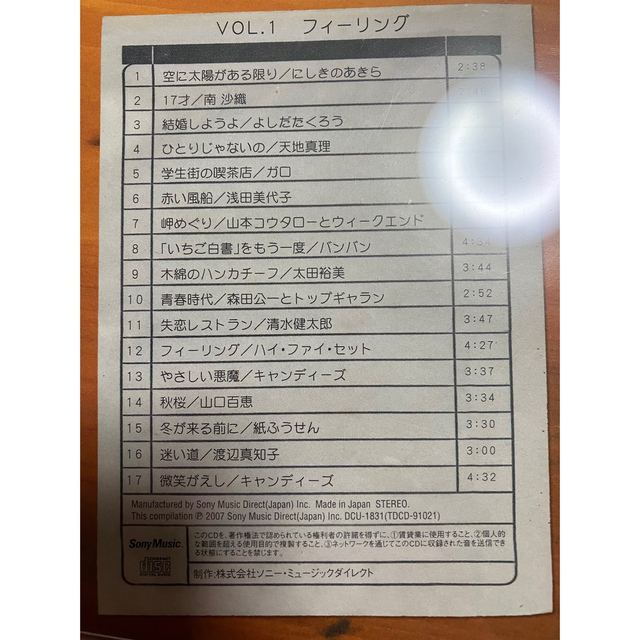 VOL.1 フィーリング
1 空に太陽がある限り／にしきのあきら 2:38
2 17才／南 沙織
3 結婚しようよ／よしだたくろう
4 ひとりじゃないの／天地真理
5 学生街の喫茶店／ガロ
6 赤い風船／浅田美代子
7 岬めぐり／山本コウタローとウィークエンド
8 「いちご白書」をもう一度／バンバン 4:34
9 木綿のハンカチーフ／太田裕美 3:44
10 青春時代／森田公一とトップギャラン 2:52
11 失恋レストラン／清水健太郎 3:47
12 フィーリング／ハイ・ファイ・セット 4:27
13 やさしい悪魔／キャンディーズ 3:37
14 秋桜／山口百恵 3:34
15 冬が来る前に／紙ふうせん 3:30
16 迷い道／渡辺真知子 3:00
17 微笑がえし／キャンディーズ 4:32
Manufactured by Sony Music Direct(Japan) Inc. Made in Japan STEREO.
This compilation ℗ 2007 Sony Music Direct(Japan) Inc. DCU-1831(TDCD-91021)
Sony Music
COMPACT disc DIGITAL AUDIO
このCDを、著作権法で認められている権利者の許諾を得ずに、①賃貸業に使用すること、②個人的
な範囲を超える使用目的で複製すること、③ネットワークを通じてこのCDに収録された音を送信でき
る状態にすることを禁じます。
制作：株式会社ソニー・ミュージックダイレクト